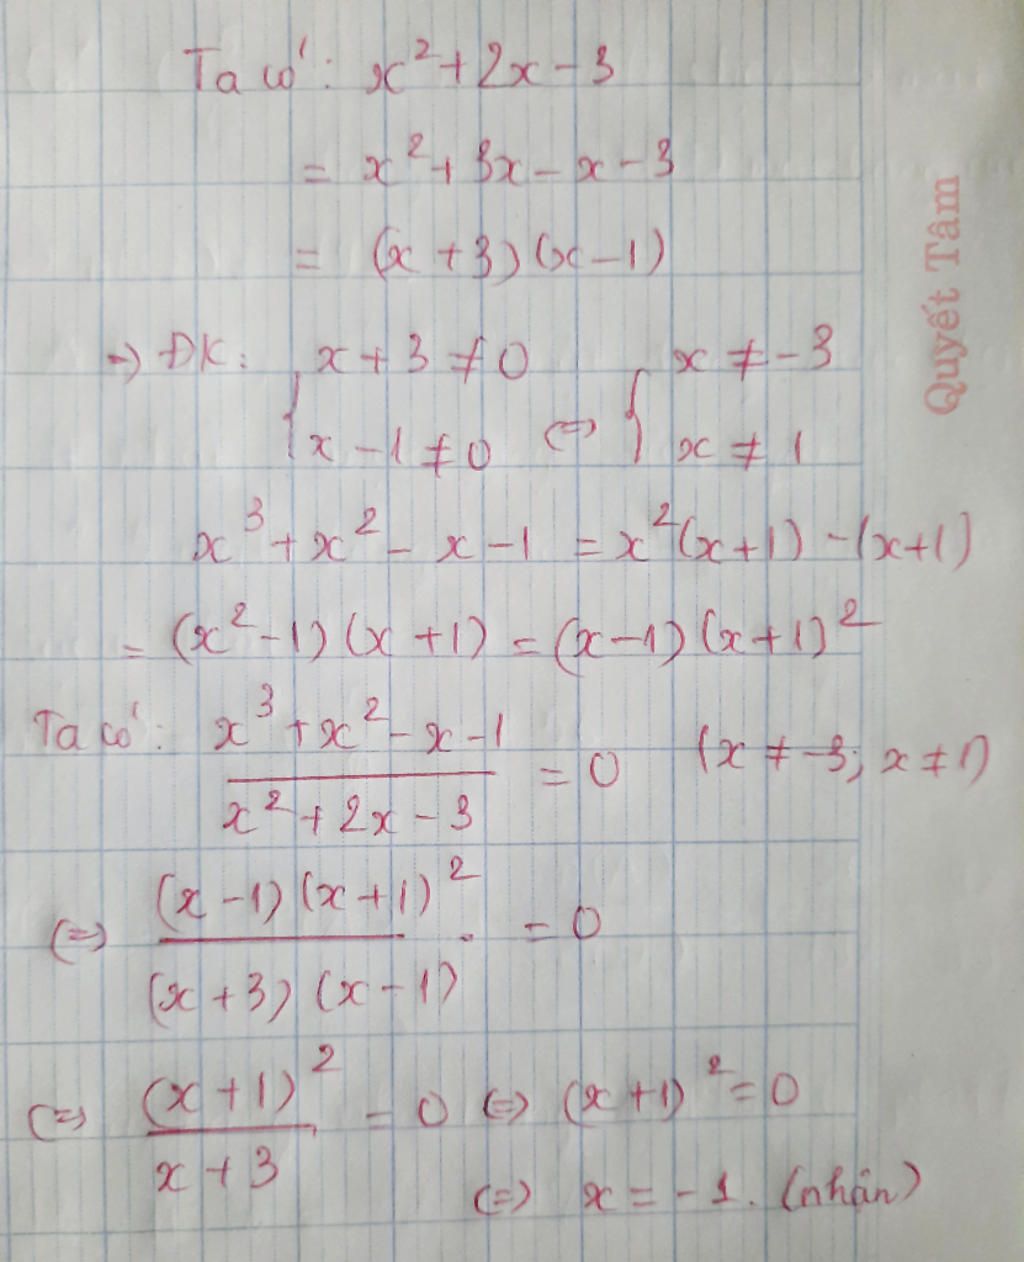 Ta có: x² + 2x - 3
= x² + 3x - x - 3
= (x + 3)(x - 1)
=> ĐK: { x + 3 ≠ 0 <=> { x ≠ -3
x - 1 ≠ 0 x ≠ 1
x³ + x² - x - 1 = x²(x+1) - (x+1)
= (x² - 1)(x + 1) = (x - 1)(x + 1)²
Ta có: (x³ + x² - x - 1)/(x² + 2x - 3) = 0 (x ≠ -3; x ≠ 1)
<=> ((x - 1)(x + 1)²)/((x + 3)(x - 1)) = 0
<=> (x + 1)²/(x + 3) = 0 <=> (x + 1)² = 0
<=> x = -1. (nhận)
Quyết Tâm